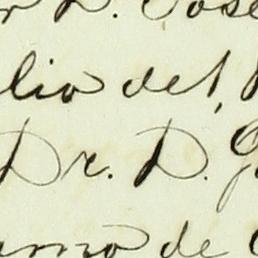 D. José
lio del
Dr. D.
de